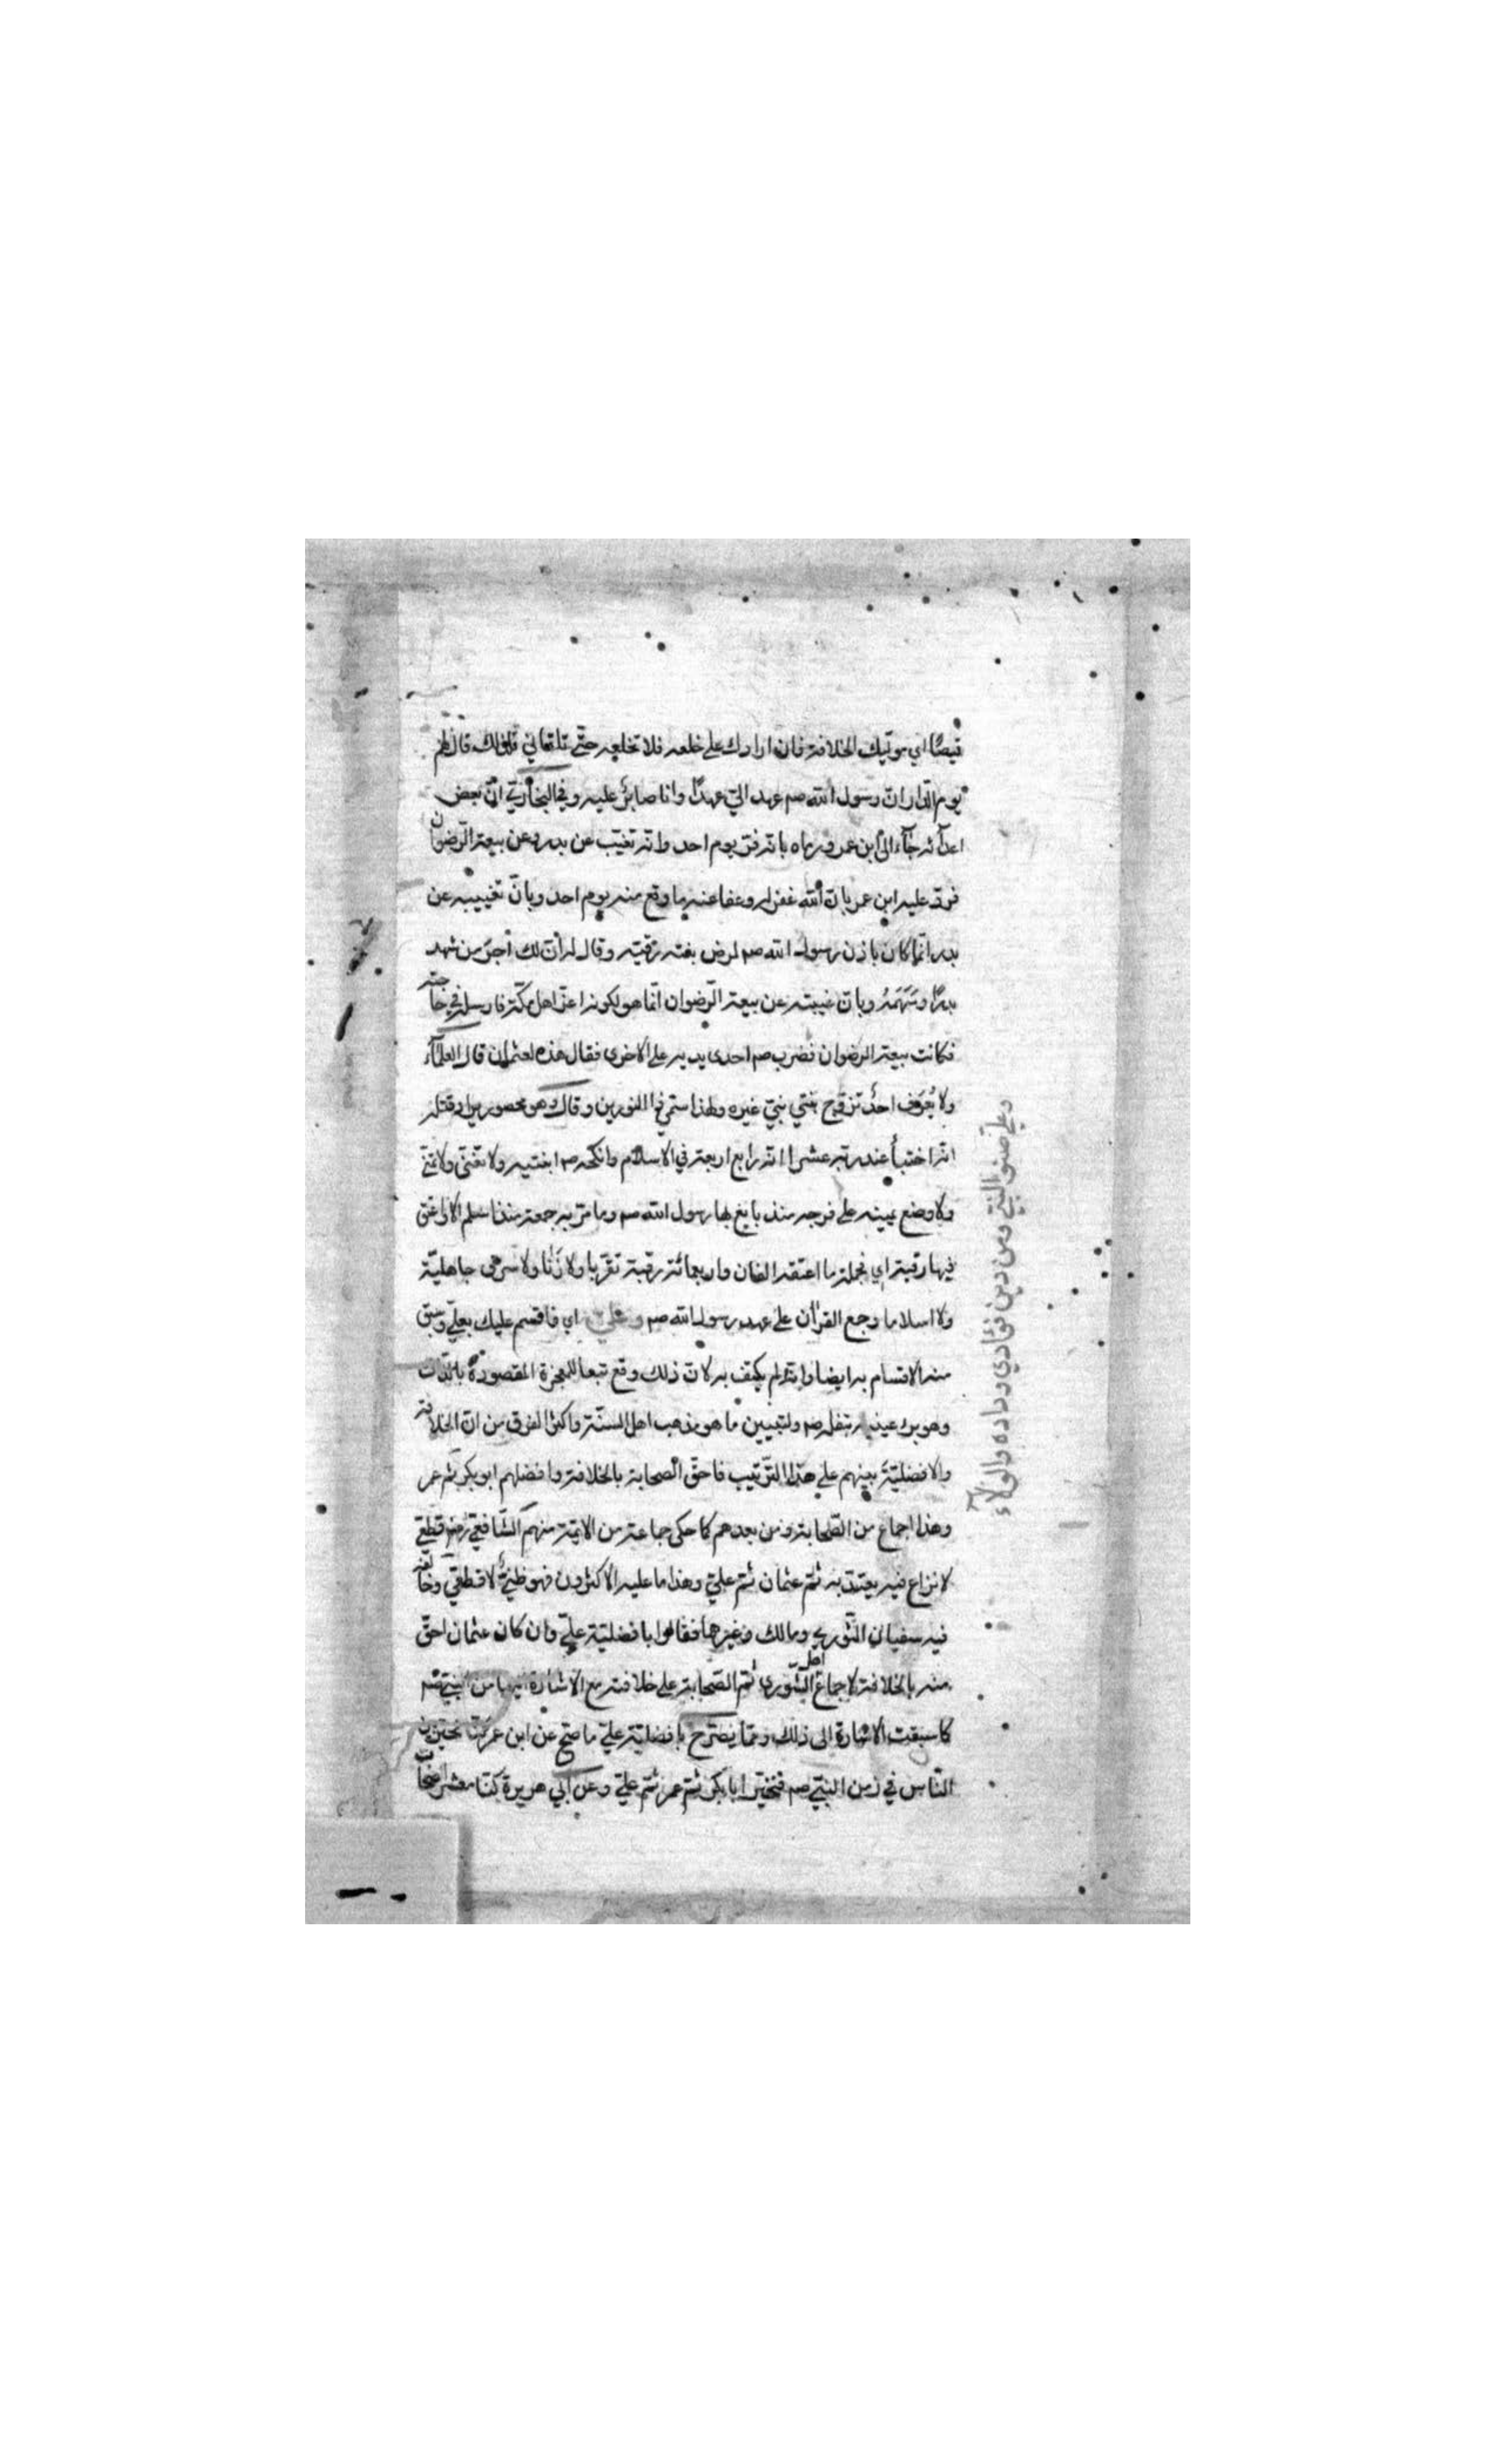 قميصًا اي يوتيك الخلافة فان ارادوك على خلعه فلا تخلعه حتى تلقاني فلذلك قال لهم
يوم الدار ان رسول الله صم عهد الي عهدًا وانا صابر عليه وفي البخاري ان بعض
اعدائه جاء الى ابن عمر ورماه بانه فر يوم احد وانه تغيب عن بدر وعن بيعة الرضوان
فرد عليه ابن عمر بان الله غفر له وعفا عنه ما وقع منه يوم احد وبان تغييبه عن
بدر انما كان باذن رسول الله صم لمرض بنته رقية وقال له ان لك اجر من شهد
بدرًا وسهمه وبان غيبته عن بيعة الرضوان انما هو لكونه اعز اهل مكة فارسله في حاجته
فكانت بيعة الرضوان فضرب صم احدى يديه على الاخرى فقال هذه لعثمان قال العلماء
ولا يُعرف احد تزوج بنتي نبي غيره ولهذا سمي ذا النورين وقال وهو محصور يراد قتله
انه اختبأ عند ربه عشرا انه رابع اربعة في الاسلام وانكحه صم ابنتيه ولا تغنى ولا تمنى
ولا وضع يمينه على فرجه منذ بايع بها رسول الله صم وما مر به جمعة منذ اسلم الا واعتق
فيها رقبة اي فجملة ما اعتقه الفان واربعمائة رقبة تقريبا ولا زنا ولا سرق جاهلية
ولا اسلاما وجمع القرآن على عهد رسول الله صم وعلي اي فاقسم عليك بعلي وسبق
منه الاقسام به ايضا وانه لم يكتف به لان ذلك وقع تبعا للمعجزة المقصودة بالذات
وهو برء عينيه بتفله صم ولتبيين ما هو مذهب اهل السنة واكثر الفرق من ان الخلافة
والافضلية بينهم على هذا الترتيب فاحق الصحابة بالخلافة وافضلهم ابو بكر ثم عمر
وهذا اجماع من الصحابة ومن بعدهم كما حكى جماعة من الايمة منهم الشافعي رضه قطعي
لا نزاع فيه يعتد به ثم عثمان ثم علي وهذا ما عليه الاكثرون فهو ظني لا قطعي وخالفه
فيه سفيان الثوري ومالك وغيرهما فقالوا بافضلية علي وان كان عثمان احق
منه بالخلافة لاجماع اهل الشورى ثم الصحابة على خلافته مع الاشارة اليها من النبي صم
كما سبقت الاشارة الى ذلك ومما يصرح بافضلية علي ما صح عن ابن عمر كنا نخير بين
الناس في زمن النبي صم فنخير ابا بكر ثم عمر ثم علي وعن ابي هريرة كنا معشر اصحاب
وعلي صنو النبي ومن دين فؤادي وداده والولاء